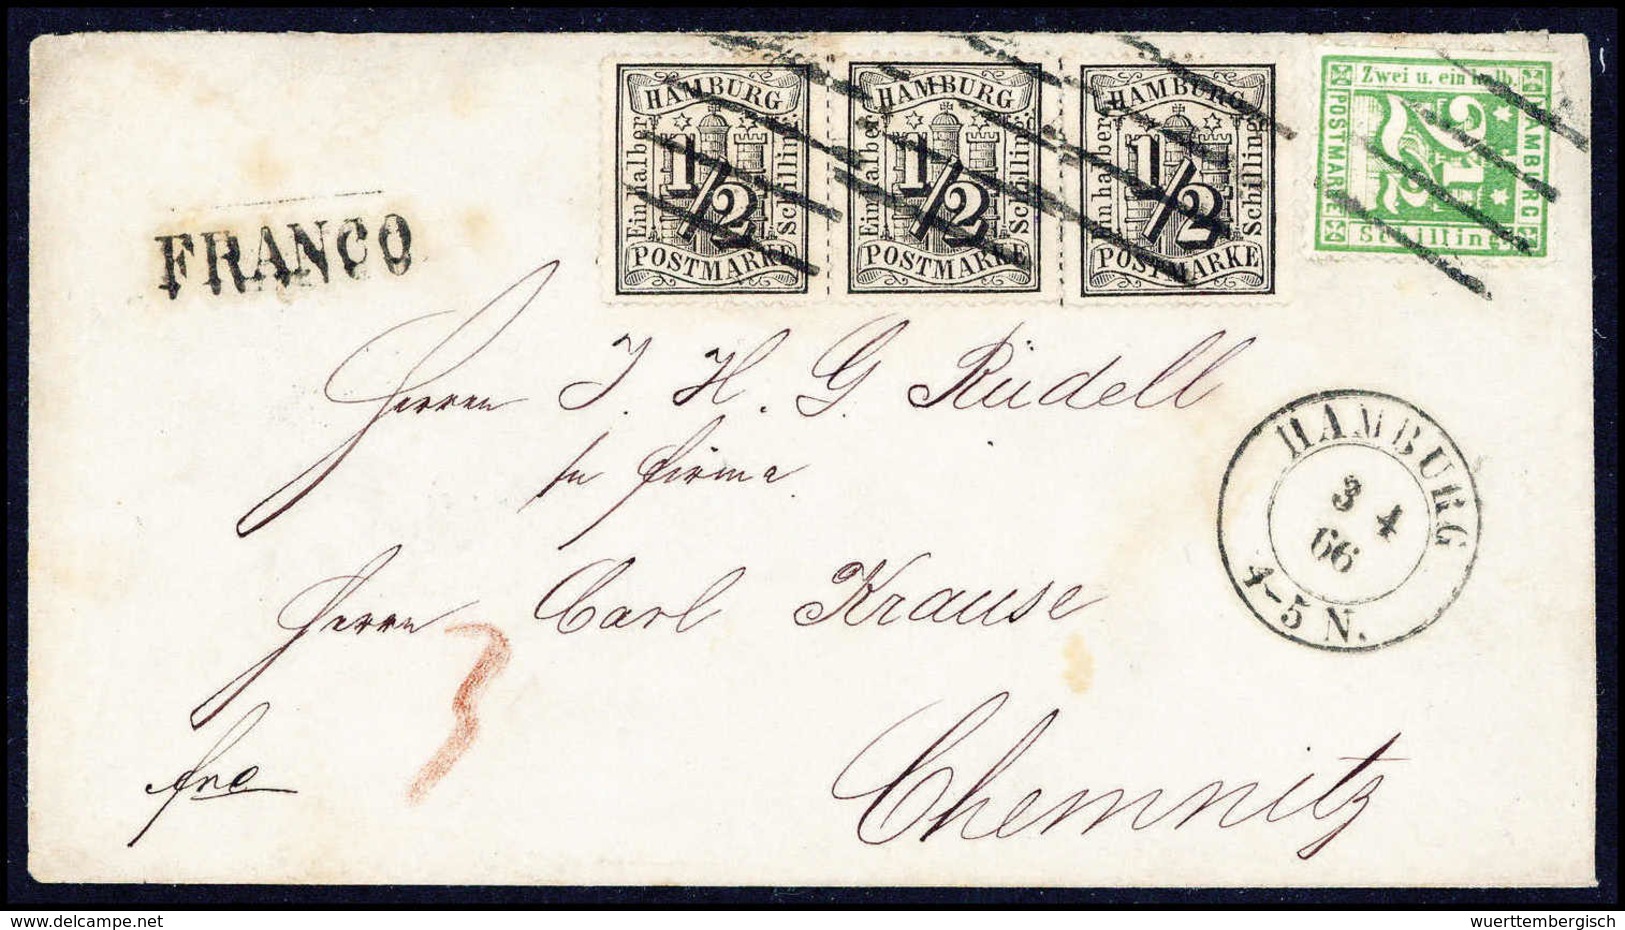 FRANCO
HAMBURG
Einhalber
Schilling
1/2
POSTMARKE
HAMBURG
Einhalber
Schilling
1/2
POSTMARKE
HAMBURG
Einhalber
Schilling
1/2
POSTMARKE
Zwei u. ein halb.
POSTMARKE
HAMBURG
2 1/2
Schilling
Herrn J. H. G. Rüdell
in Firma
Herrn Carl Krause
Chemnitz
fro
3
HAMBURG
3 4
66
4-5 N.
delcampe.net
wuerttembergisch